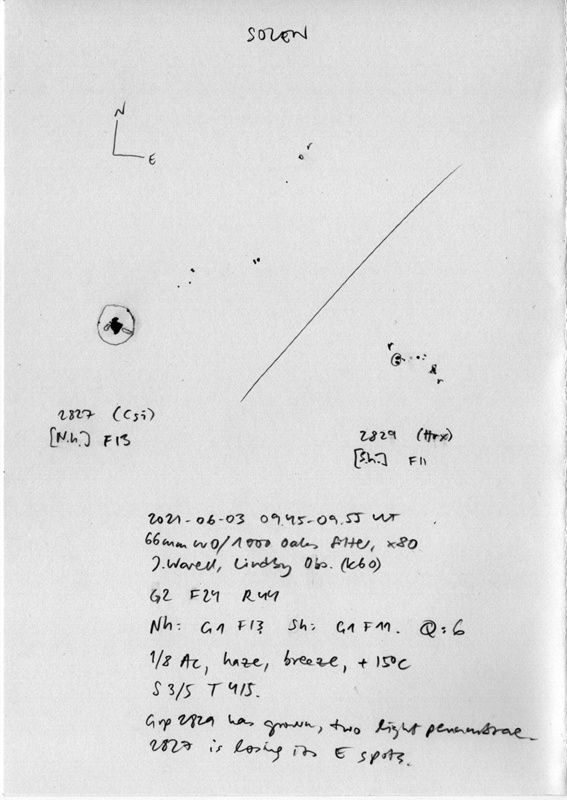 SOLEN
N
E
r
r
r
2827 (Csi)
[N.h.] F13
2829 (Hrx)
[S.h.] F11
2021-06-03 09.45-09.55 UT
66mm WO/1000 Oaks filter, x80
J. Warell, Lindby Obs. (K60)
G2 F24 R44
Nh: G1 F13 Sh: G1 F11. Q:6
1/8 Ac, haze, breeze, +15°C
S 3/5 T 4/5.
Grp 2829 has grown, two light penumbrae.
2827 is losing its E spots.